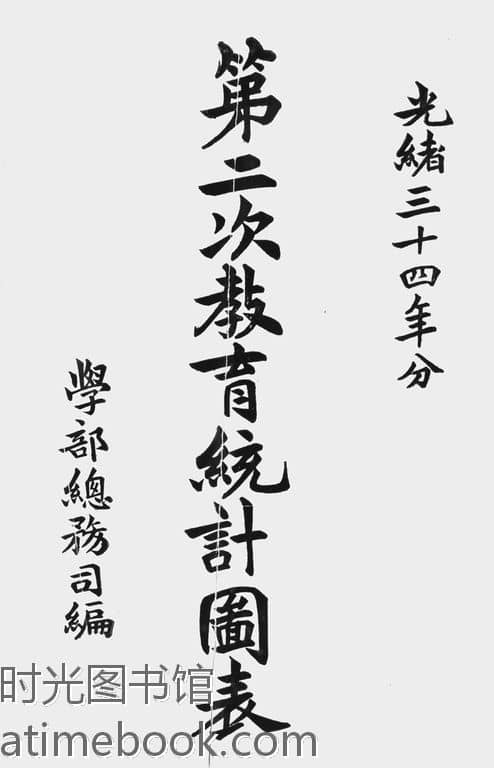 光緒三十四年分
第二次教育統計圖表
學部總務司編
时光图书馆
atimebook.com